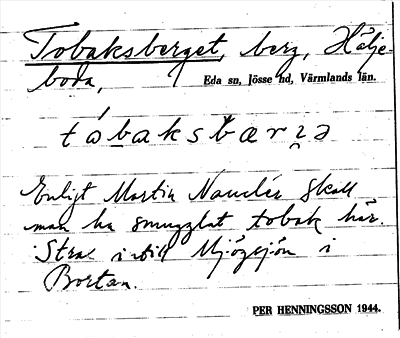 Tobaksberget, berg, Hälje-
boda, Eda sn, Jösse hd, Värmlands län.
tábaksbærʒə
Enligt Martin Nauclér skall
man ha smugglat tobak här.
Strax intill Mjögsjön i
Bortan.
PER HENNINGSSON 1944.